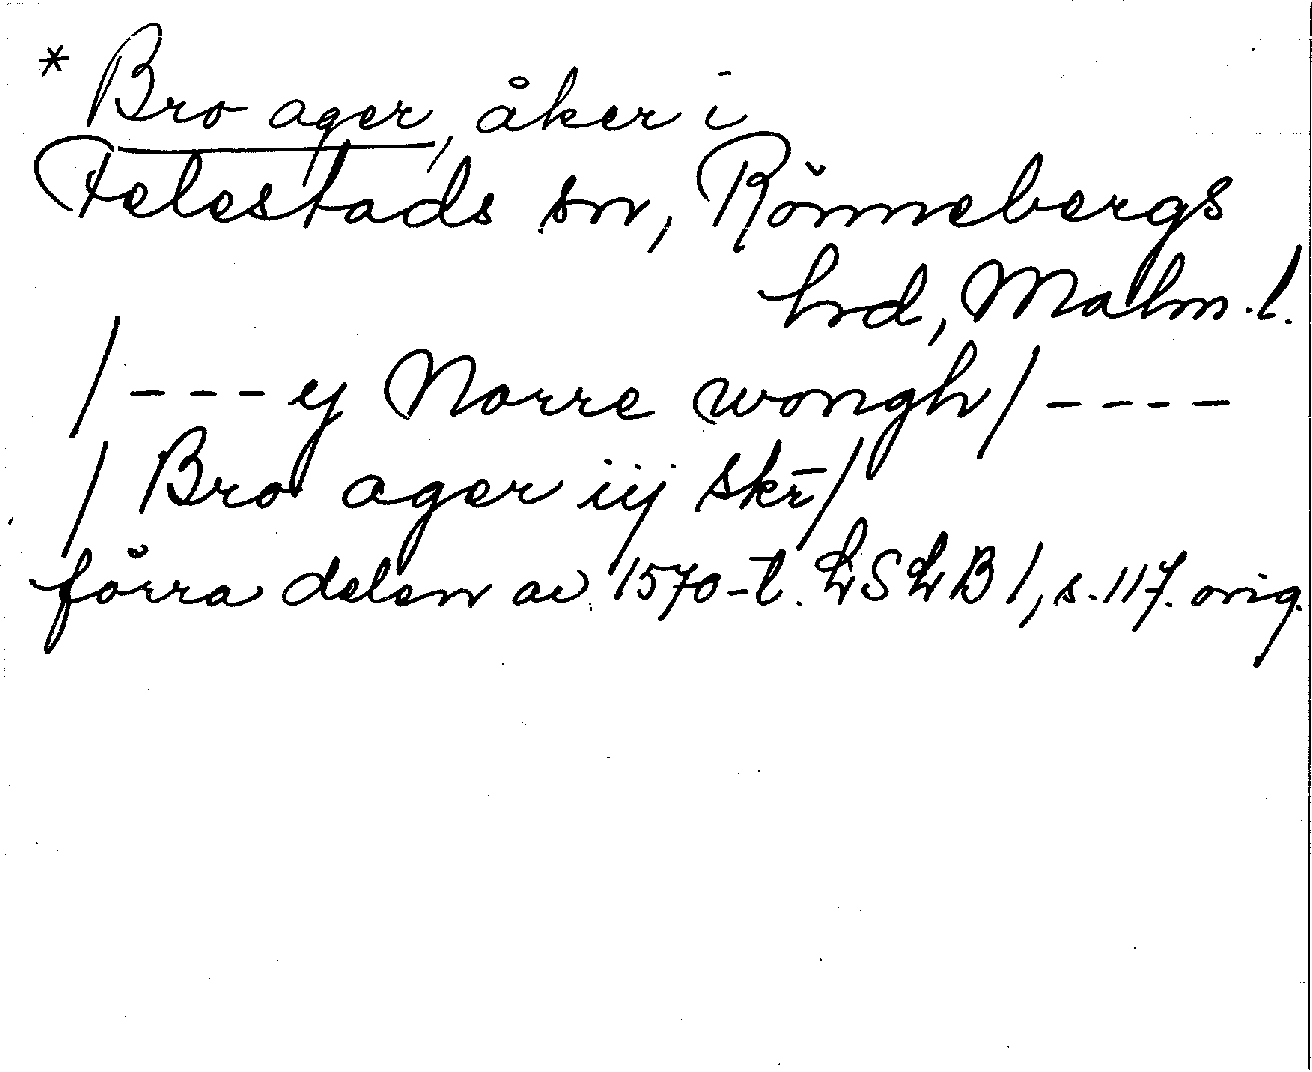 * Bro ager, åker i
Felestads sn, Rönnebergs
hrd, Malm. l.
/ - - - ij Norre wongh / - - - -
/ Bro ager iij skr̄ /
förra delen av 1570-t. LSLB 1, s. 117. orig.